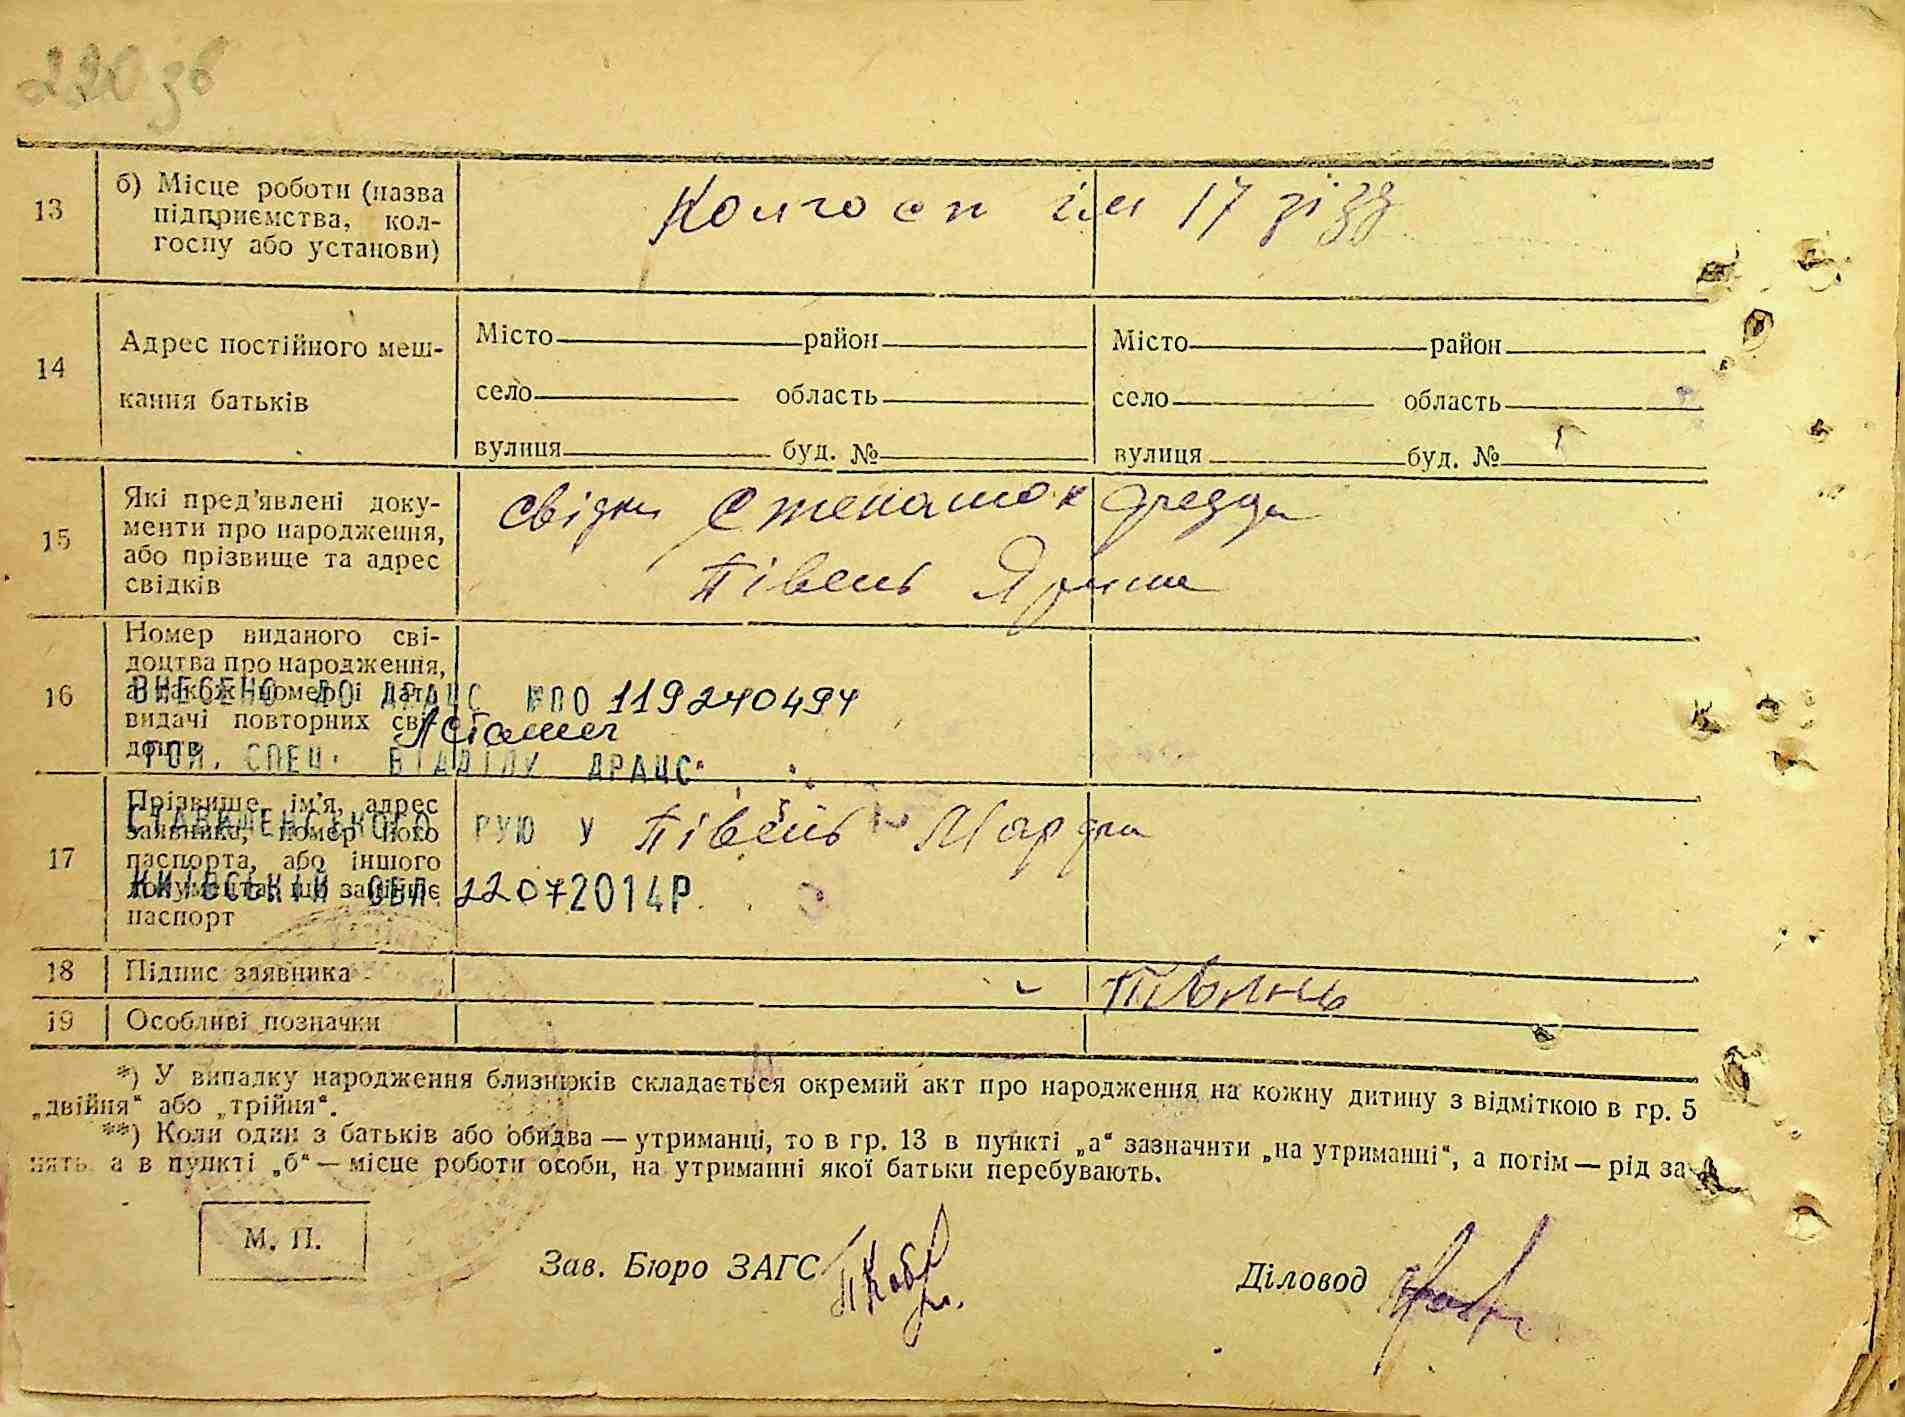 220 зв
13 б) Місце роботи (назва
підприємства, кол-
госпу або установи)
Колгосп ім 17 зізд
14 Адрес постійного меш-
кання батьків
Місто район Місто район
село область село область
вулиця буд. № вулиця буд. №
15 Які пред’явлені доку-
менти про народження,
або прізвище та адрес
свідків
свідки Степанюк
Півень Ярина
16 Номер виданого сві-
доцтва про народження,
а також номер і дата
видачі повторних сві-
доцтв
ВНЕСЕНО ДО ДРАЦС №ПО 119240494
ГОЛ. СПЕЦ. ВІДДІЛУ ДРАЦС
17 Прізвище, ім’я, адрес
заявника, номер його
паспорта, або іншого
документа, що заміняє
паспорт
СТАВИЩЕНСЬКОГО РУЮ У
Півень Марфа
КИЇВСЬКІЙ ОБЛ. 22 07 2014Р.
18 Підпис заявника Півень
19 Особливі позначки
*) У випадку народження близнюків складається окремий акт про народження на кожну дитину з відміткою в гр. 5
„двійня“ або „трійня“.
**) Коли один з батьків або обидва — утриманці, то в гр. 13 в пункті „а“ зазначити „на утриманні“, а потім — рід за-
нять, а в пункті „б“ — місце роботи особи, на утриманні якої батьки перебувають.
М. П.
Зав. Бюро ЗАГС
Діловод